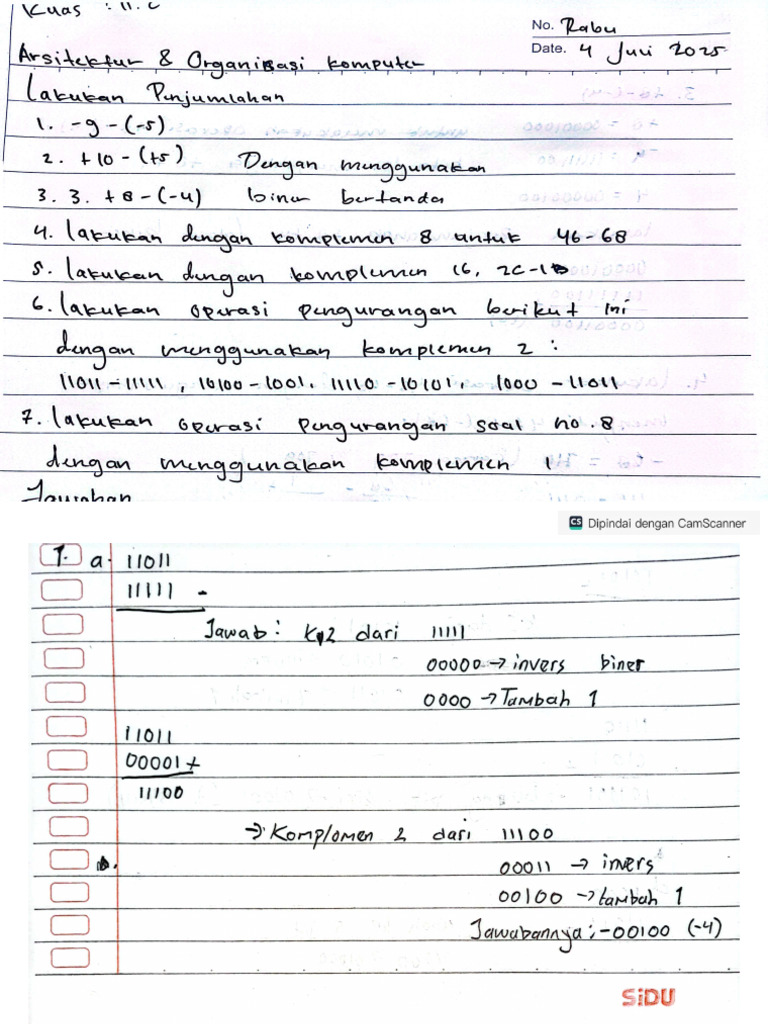 Kuas : 11. c
No. Rabu
Date. 4 Juli 2025
Arsitektur & Organisasi komputer
Lakukan Penjumlahan
1. -9 - (-5)
2. +10 - (+5) Dengan menggunakan
3. 3. +8 - (-4) biner bertanda
4. lakukan dengan komplemen 8 untuk 46-68
5. lakukan dengan komplemen 16, 2C-1B
6. lakukan operasi pengurangan berikut ini
dengan menggunakan komplemen 2 :
11011-11111, 10100-1001. 11110-10101. 1000 - 11011
7. lakukan operasi pengurangan soal no. 8.
dengan menggunakan komplemen 1
Jawaban
CS Dipindai dengan CamScanner
1. a. 11011
11111 -
Jawab : K2 dari 11111
00000 → invers biner
0000 → Tambah 1
11011
00001 +
11100
→ Komplomen 2 dari 11100
b. 00011 → invers
00100 → tambah 1
Jawabannya : -00100 (-4)
SiDU